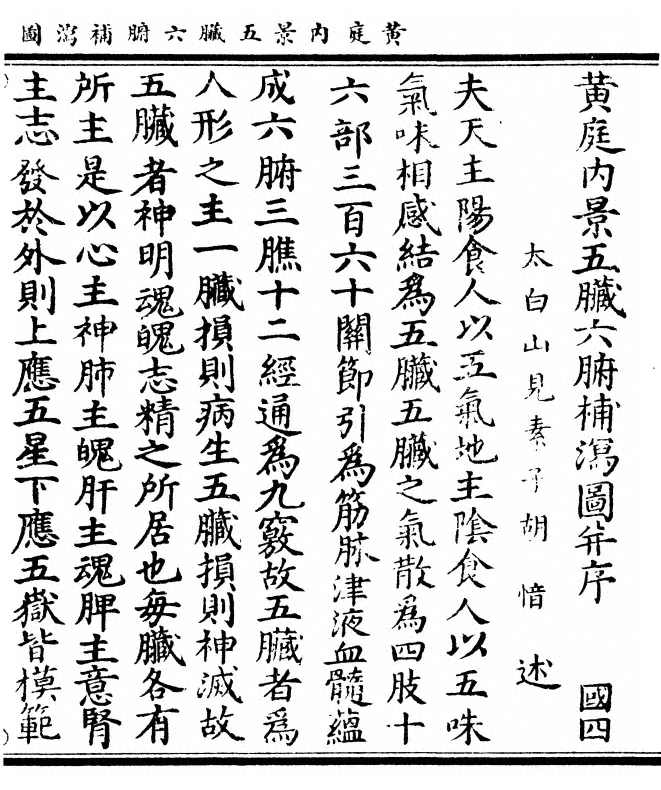 黄庭内景五臟六腑補瀉圖
黄庭内景五臟六腑補瀉圖并序 國四
太白山見素子胡愔述
夫天主陽食人以五氣地主陰食人以五味
氣味相感結爲五臟五臟之氣散爲四肢十
六部三百六十關節引爲筋脉津液血髓藴
成六腑三膲十二經通爲九竅故五臟者爲
人形之主一臟損則病生五臟損則神滅故
五臟者神明魂魄志精之所居也每臟各有
所主是以心主神肺主魄肝主魂脾主意腎
主志發於外則上應五星下應五嶽皆模範